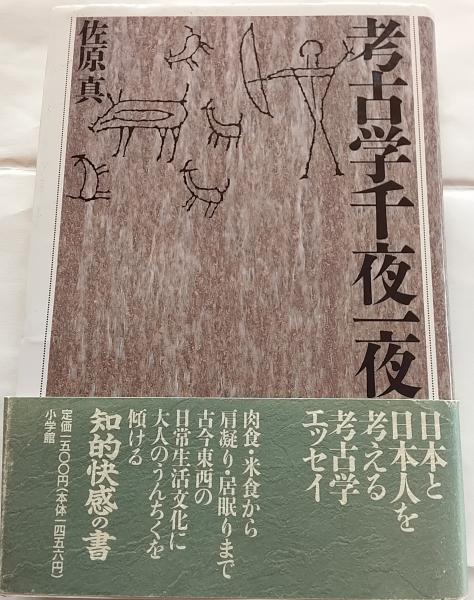 考古学千夜一夜
佐原真
日本と
日本人を
考える
考古学
エッセイ
肉食・米食から
肩凝り・居眠りまで
古今東西の
日常生活文化に
大人のうんちくを
傾ける
知的快感の書
定価一五〇〇円(本体一四五六円)
小学館